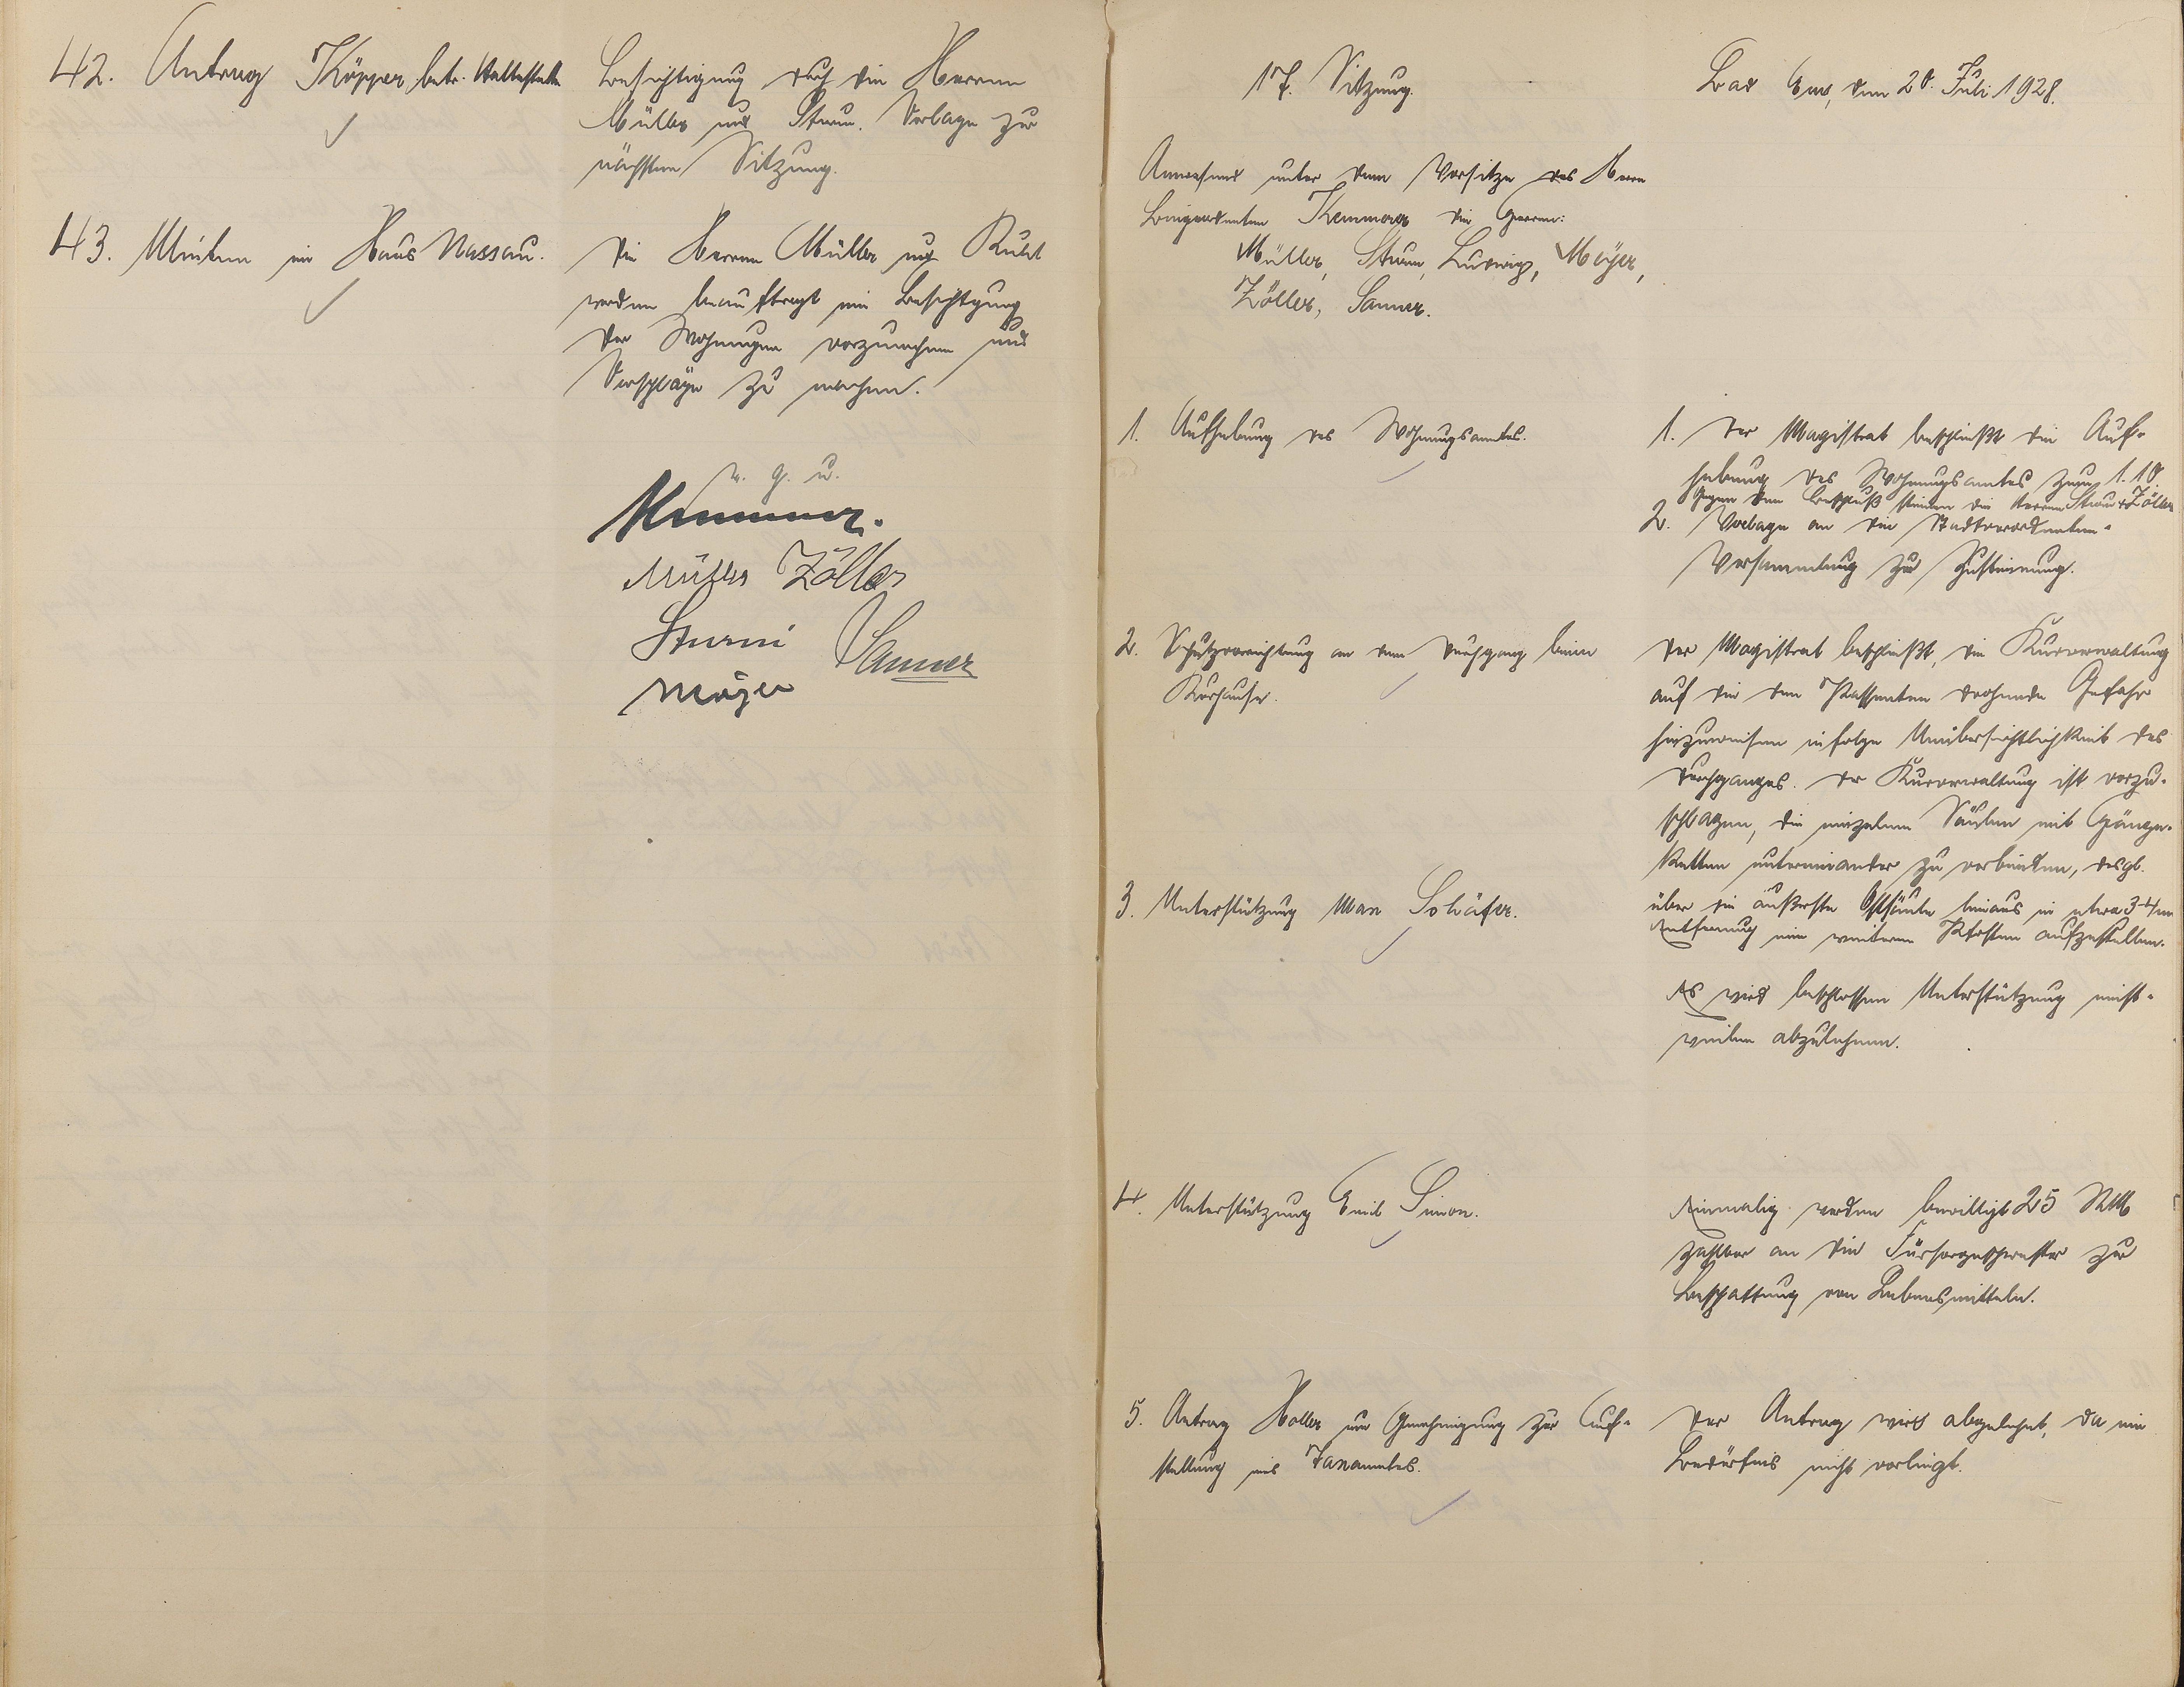 42. Antrag Köpper betr. Haltestelle
Besichtigung durch die Herren
Müller und Sturm. Vorlage zur
nächsten Sitzung.
43. Mieten im Haus Nassau.
Die Herren Müller und Ruhl
werden beauftragt eine Besichtigung
der Wohnungen vorzunehmen und
Vorschläge zu machen.
v. g. u.
Kemmer.
Müller Zöller
Sturm Sanner
Mayer
17. Sitzung.
Bad Ems, den 20. Juli 1928.
Anwesend unter dem Vorsitze des Herrn
Beigeordneten Kemmer die Herren:
Müller, Sturm, Ludwig, Mayer,
Zöller, Sanner.
1. Aufhebung des Wohnungsamtes.
1. Der Magistrat beschließt die Auf-
hebung des Wohnungsamtes zum 1.10.
Gegen den Beschluß stimmen die Herren Sturm & Zöller
2. Vorlage an die Stadtverordneten-
Versammlung zur Zustimmung.
2. Schutzvorrichtung an dem Durchgang beim
Kurhause.
Der Magistrat beschließt, die Kurverwaltung
auf die den Passanten drohende Gefahr
hinzuweisen infolge Unübersichtlichkeit des
Durchganges. Der Kurverwaltung ist vorzu-
schlagen, die einzelnen Säulen mit Hänge-
ketten untereinander zu verbinden, desgl.
über die äußerste Ostsäule hinaus in etwa 3-4 m
Entfernung einen weiteren Pfosten aufzustellen.
3. Unterstützung Max Schäfer.
Es wird beschlossen Unterstützung einst-
weilen abzulehnen.
4. Unterstützung Emil Simon.
Einmalig werden bewilligt 25 RM
zahlbar an die Fürsorgeschwester zur
Beschaffung von Lebensmitteln.
5. Antrag Holler um Genehmigung zur Auf-
stellung eines Taxautos.
Der Antrag wird abgelehnt, da ein
Bedürfnis nicht vorliegt.